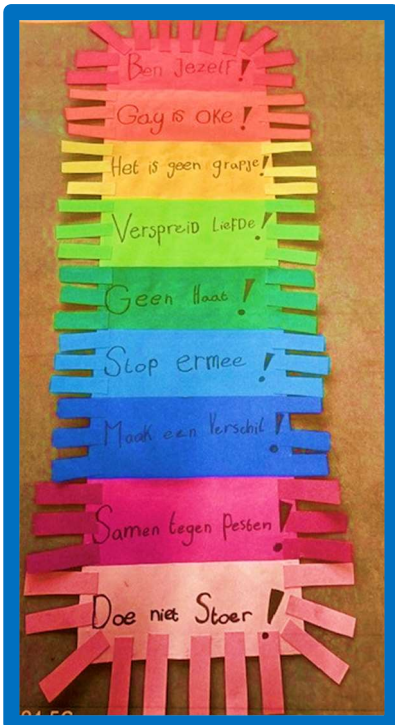 Ben Jezelf!
Gay is oke!
Het is geen grapje!
Verspreid Liefde!
Geen Haat!
Stop ermee!
Maak een Verschil!
Samen tegen Pesten!
Doe niet Stoer!